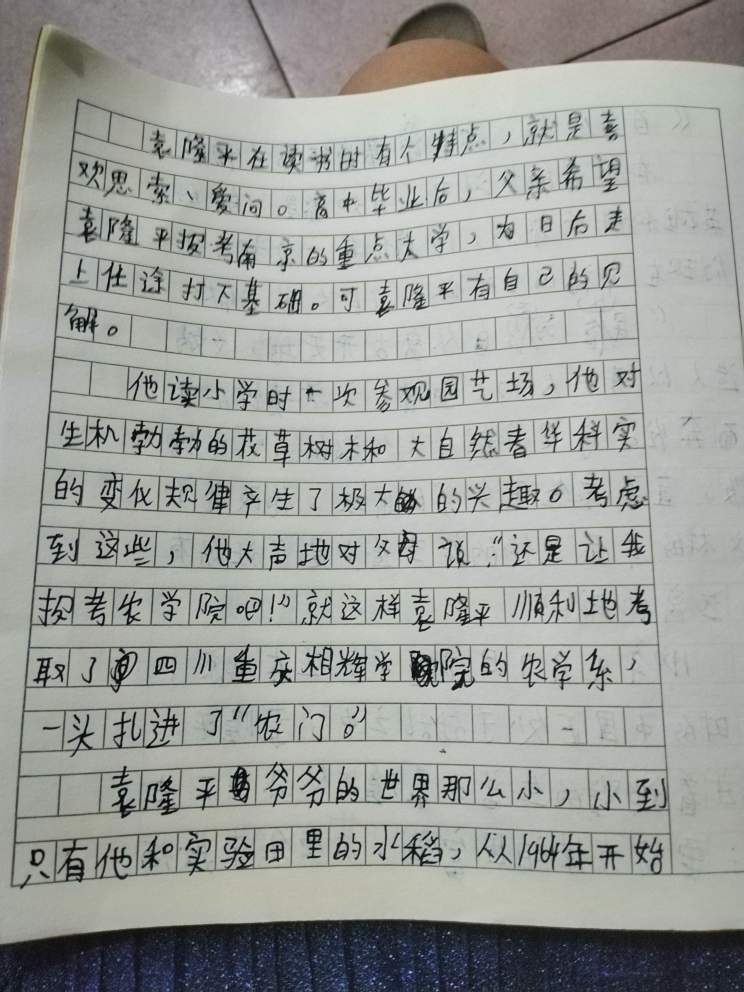 袁隆平在读书时有个特点，就是喜
欢思索、爱问。高中毕业后，父亲希望
袁隆平报考南京的重点大学，为日后走
上仕途打下基础。可袁隆平有自己的见
解。
他读小学时一次参观园艺场，他对
生机勃勃的花草树木和大自然春华秋实
的变化规律产生了极大的兴趣。考虑
到这些，他大声地对父母说：“还是让我
报考农学院吧！”就这样袁隆平顺利地考
取了四川重庆相辉学院的农学系，
一头扎进了“农门”。
袁隆平爷爷的世界那么小，小到
只有他和实验田里的水稻，从1964年开始